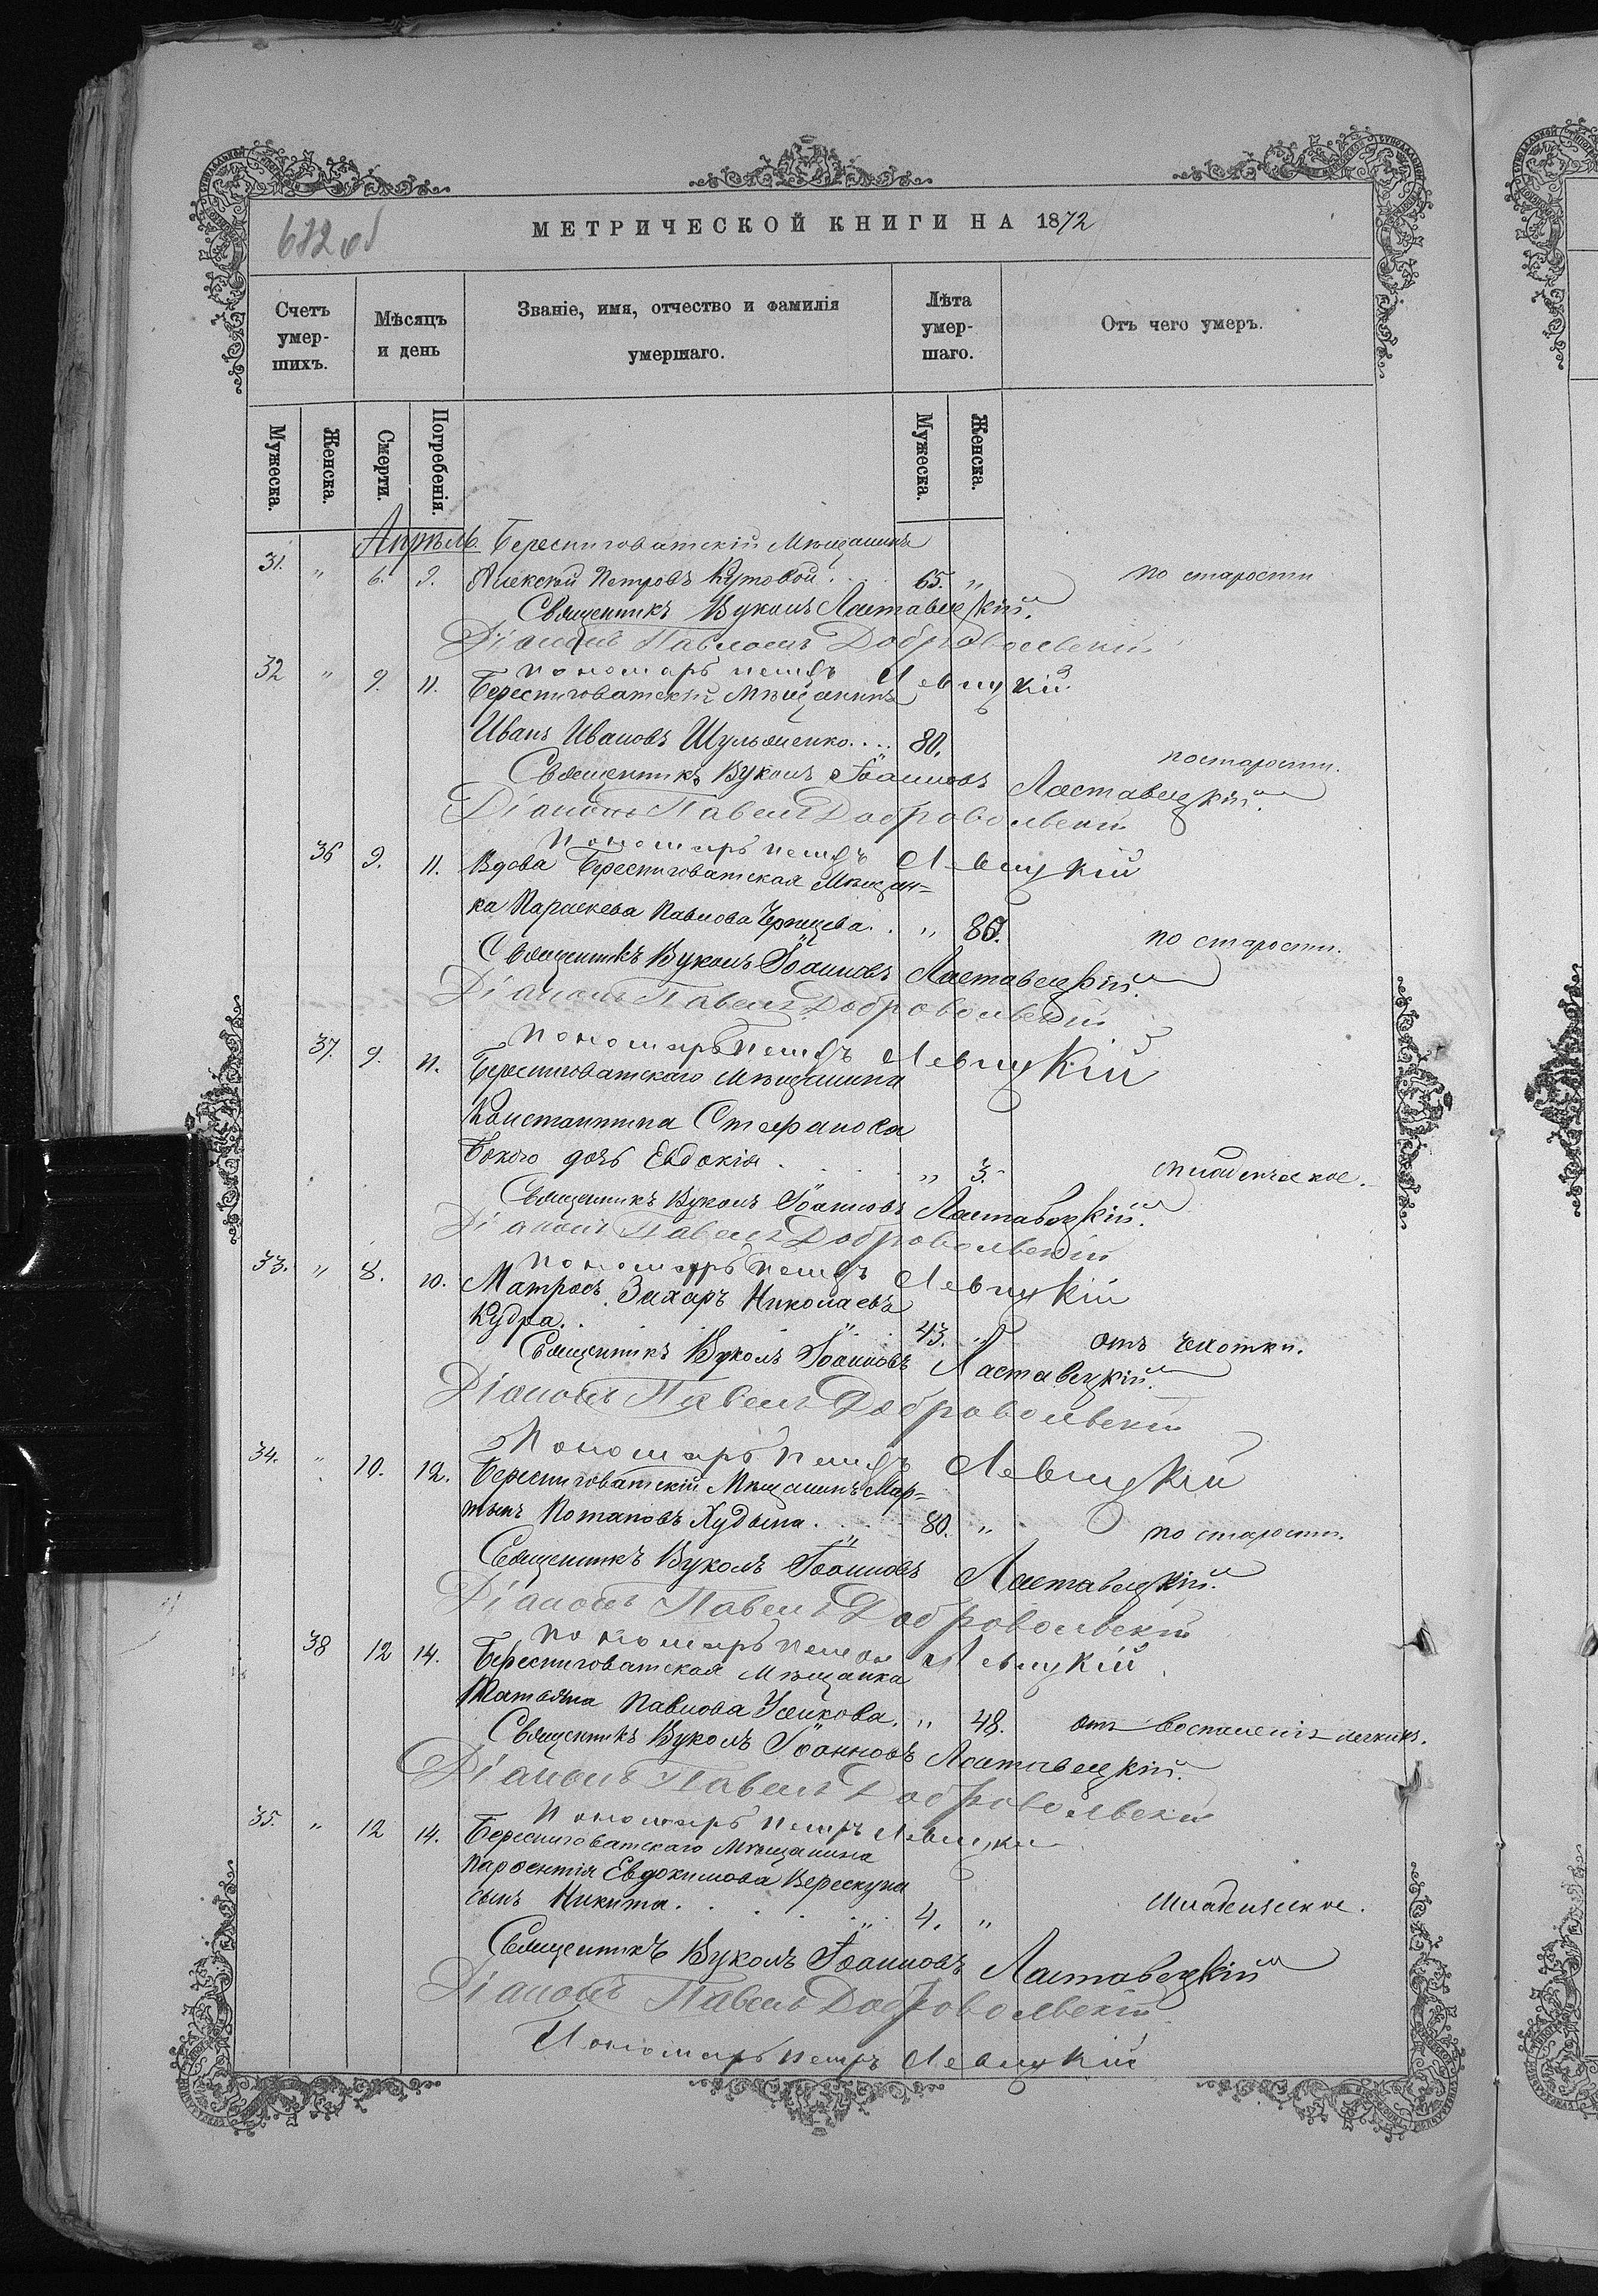 682 об
МЕТРИЧЕСКОЙ КНИГИ НА 1872
Счетъ умер-шихъ.
Мѣсяцъ и день
Званіе, имя, отчество и фамилія умершаго.
Лѣта умер-шаго.
Отъ чего умеръ.
Мужеска. Женска. Смерти. Погребенія. Мужеска. Женска.
Апрѣль. Берестиговатскій Мѣщанинъ
31. " 6. 9. Алексѣй Петровъ Кутовой. 65. " по старости
Священникъ Вуколъ Ластавецкій.
Діаконъ Павелъ Добровольскій
Пономарь Петръ Левицкій
32 " 9. 11. Берестиговатскій Мѣщанинъ
Иванъ Ивановъ Шульженко.... 80. по старости.
Священникъ Вуколъ Іоанновъ Ластавецкій.
Діаконъ Павелъ Добровольскій
Пономарь Петръ Левицкій
36 9. 11. Вдова Берестиговатская Мѣщан=
ка Параскева Павлова . " 80. по старости.
Священникъ Вуколъ Іоанновъ Ластавецкій.
Діаконъ Павелъ Добровольскій
Пономарь Петръ Левицкій
37. 9. 11. Берестиговатскаго Мѣщанина
Константина Стефанова
дочь Евдокія . . . . " 3. младенческое.
Священникъ Вуколъ Іоанновъ Ластавецкій.
Діаконъ Павелъ Добровольскій
Пономарь Петръ Левицкій
33. " 8. 10. Матросъ Захаръ Николаевъ
Кудра. . . . . 43. " отъ чахотки.
Священникъ Вуколъ Іоанновъ Ластавецкій.
Діаконъ Павелъ Добровольскій
Пономарь Петръ Левицкій
34. " 10. 12. Берестиговатскій Мѣщанинъ Мар=
тынъ Потаповъ Худына. . . . 80. " по старости.
Священникъ Вуколъ Іоанновъ Ластавецкій.
Діаконъ Павелъ Добровольскій
Пономарь Петръ Левицкій
38 12 14. Берестиговатская Мѣщанка
Татьяна Павлова Усикова. " 48. отъ воспаленія легкихъ.
Священникъ Вуколъ Іоанновъ Ластавецкій.
Діаконъ Павелъ Добровольскій
Пономарь Петръ Левицкій
35. " 12 14. Берестиговатскаго Мѣщанина
Парфентія Евдокимова Верескуна
сынъ Никита. . . . . 4. " младенческое.
Священникъ Вуколъ Іоанновъ Ластавецкій
Діаконъ Павелъ Добровольскій
Пономарь Петръ Левицкій